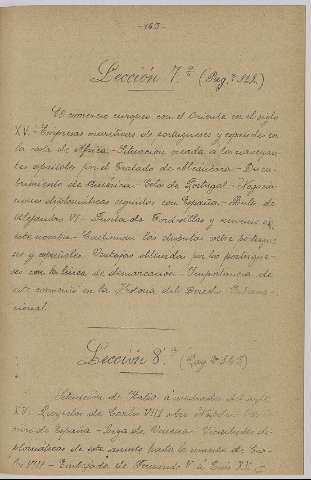 -163-
Lección 7.ª (Pag.ª 321.)
El comercio europeo con el Oriente en el siglo
XV.- Empresas marítimas de portugueses y españoles en
la costa de Africa.- Situación creada a los
españoles por el Tratado de - Descu-
brimiento de América.- Celo de Portugal.- Negocia-
ciones diplomáticas seguidas con España.- Bula de
Alejandro VI.- Junta de Tordesillas y convenio de
este nombre.- Continúan las disputas entre portugue-
ses y españoles. Ventajas obtenidas por los portugue-
ses con la línea de demarcación. Importancia de
este convenio en la Historia del Derecho Interna-
cional.
Lección 8.ª (Pag.ª 343)
Situación de Italia a mediados del siglo
XV.- Proyectos de Carlos VIII sobre Nápoles.-
de España.- Liga de Venecia.- di-
plomáticas de este asunto hasta la muerte de Car-
los VIII.- Embajada de Fernando V a Luis XII